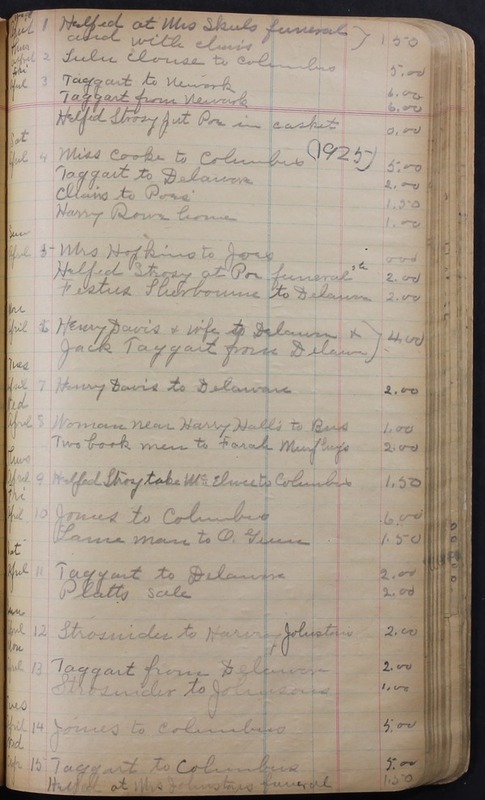 April 1 Helped at Mrs Skuls funeral
and with chairs 1.50
April 2 Lulu Clouse to Columbus 5.00
Fri
April 3 Taggart to Newark 6.00
Taggart from Newark 6.00
Helped Strosy put Poe in casket 0.00
Sat
April 4 Miss Cooke to Columbus (1925) 5.00
Taggart to Delaware 2.00
Chairs to Poes' 1.50
Harry Rowe home 1.00
Sun
April 5 Mrs Hopkins to Joes 000
Helped Strosy at Poe funeral 2.00
Festus Sherbourne to Delaware 2.00
Mon
April 6 Henry Davis & wife to Delaware & 4.00
Jack Taggart from Delaware
Tues
April 7 Henry Davis to Delaware 2.00
Wed
April 8 Woman near Harry Hall's to Bus 1.00
Two book men to Farah 2.00
Thurs
April 9 Helped Strosy take to Columbus 1.50
Fri
April 10 Jones to Columbus 6.00
Lame man to O. 1.50
Sat
April 11 Taggart to Delaware 2.00
Platts sale 2.00
Sun
April 12 Strosnider to Harvey Johnstons 2.00
Mon
April 13 Taggart from Delaware 2.00
Strosnider to Johnsons 1.00
Tues
April 14 Jones to Columbus 5.00
Wed
Apr 15 Taggart to Columbus 5.00
Helped at Mrs Johnstons funeral 1.50